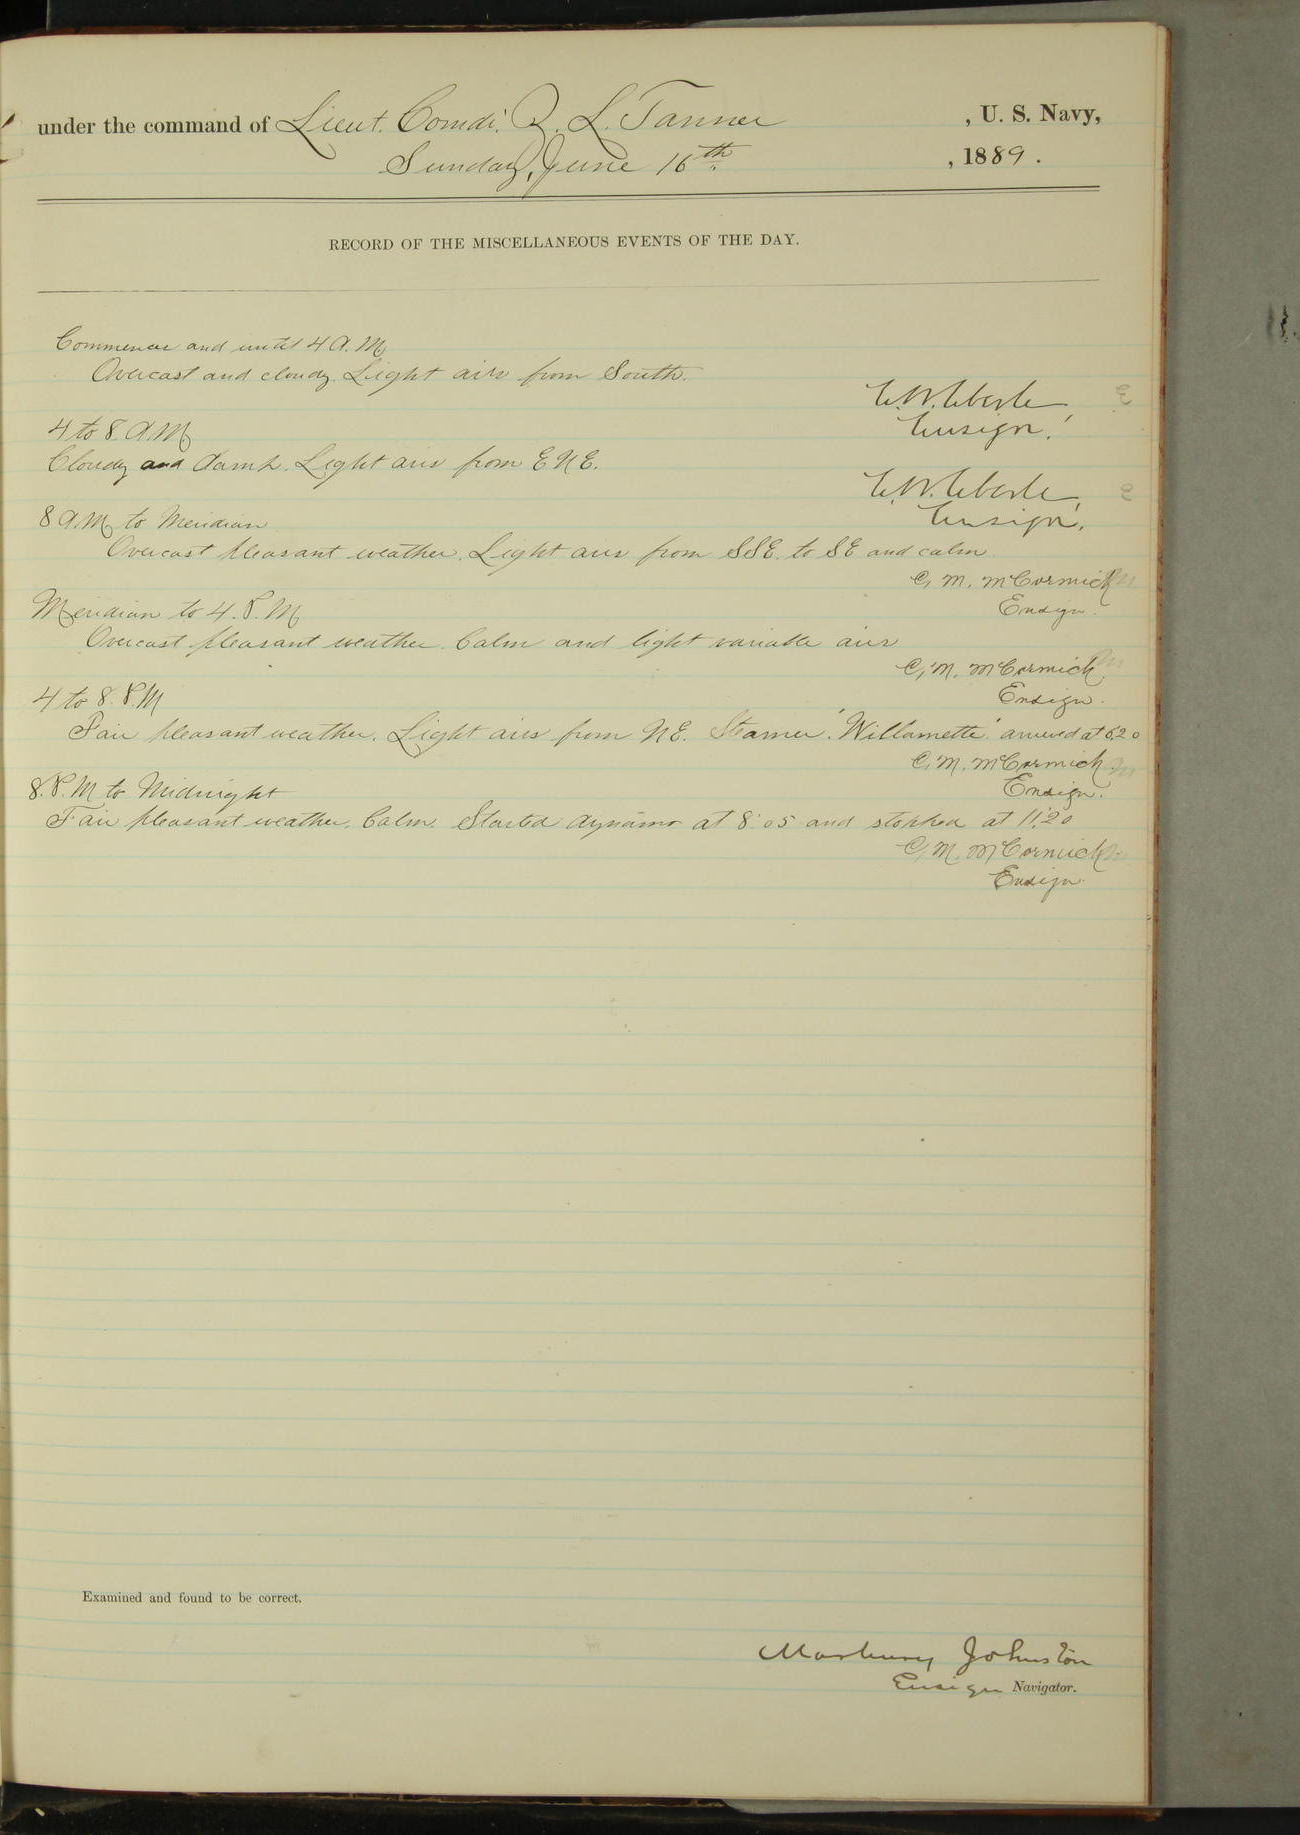 under the command of Lieut. Comdr. Z. L. Tanner, U. S. Navy,
Sunday, June 16th, 1889.
RECORD OF THE MISCELLANEOUS EVENTS OF THE DAY.
Commences and until 4 A.M.
Overcast and cloudy. Light airs from South.
E.W. Eberle,
Ensign.
4 to 8. A.M.
Cloudy and damp. Light airs from ENE.
E.W. Eberle,
Ensign.
8 A.M. to Meridian.
Overcast pleasant weather. Light airs from SSE. to SE and calm
C. M. McCormick
Ensign.
Meridian to 4. P.M.
Overcast pleasant weather. Calm and light variable airs
C. M. McCormick
Ensign.
4 to 8. P.M
Fair pleasant weather. Light airs from NE. Steamer "Willamette" arrived at 6.20
C. M. McCormick
Ensign.
8. P.M to Midnight
Fair pleasant weather. Calm. Started dynamo at 8:05 and stopped at 11:20
C. M. McCormick
Ensign.
Examined and found to be correct.
Marbury Johnston
Ensign Navigator.